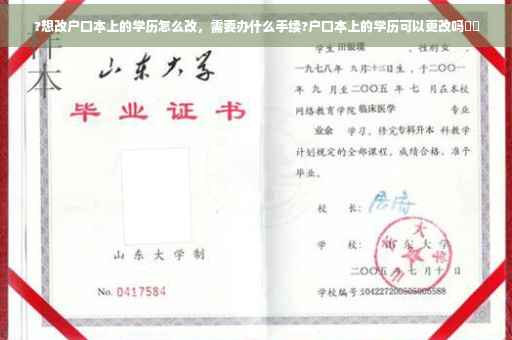 ?想改户口本上的学历怎么改，需要办什么手续?户口本上的学历可以更改吗
样本
山东大学
毕业证书
山东大学制
No. 0417584
学生 田银瑛 ，性别女，
一九七八年 九月十三日生，于二〇〇一
年 九 月至二〇〇五 年 七 月在本校
网络教育学院 临床医学 专业
业余 学习，修完专科升本 科教学
计划规定的全部课程，成绩合格，准予
毕业。
校 长：
学 校： 山东大学
二〇〇五年 七 月十 日
学校编号: